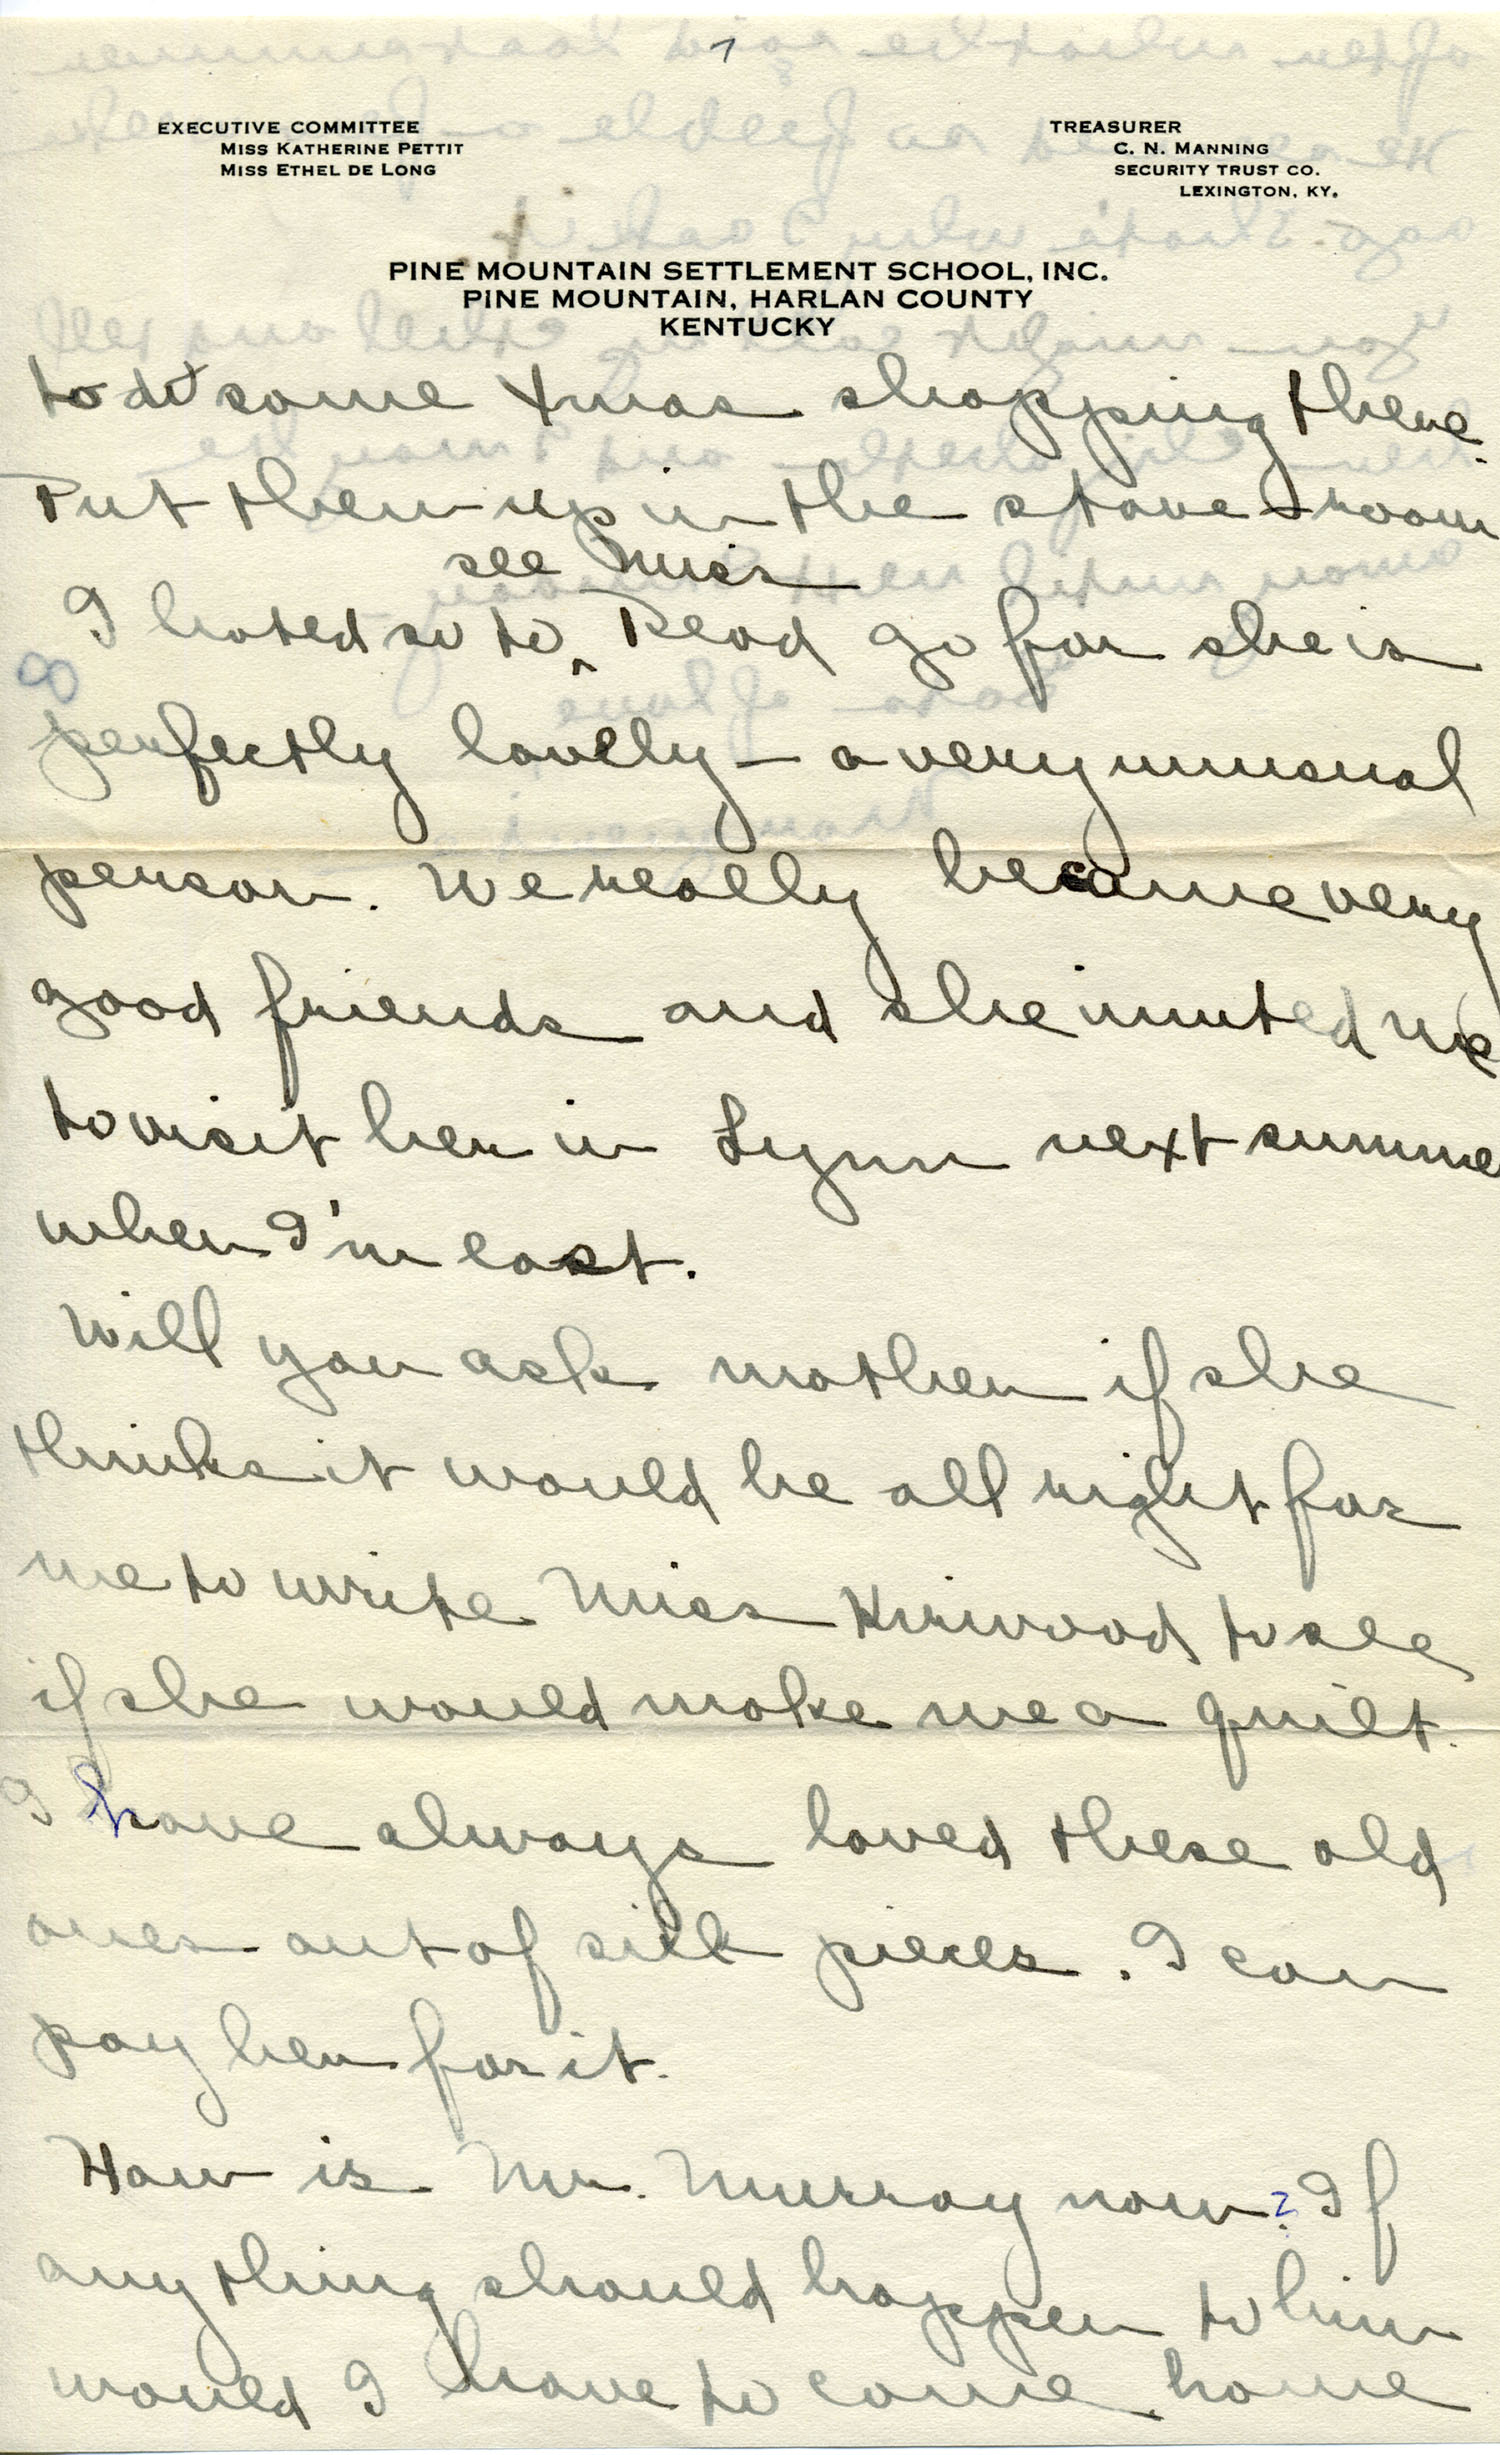 7
EXECUTIVE COMMITTEE
MISS KATHERINE PETTIT
MISS ETHEL DE LONG
TREASURER
C. N. MANNING
SECURITY TRUST CO.
LEXINGTON, KY.
PINE MOUNTAIN SETTLEMENT SCHOOL, INC.
PINE MOUNTAIN, HARLAN COUNTY
KENTUCKY
to do some Xmas shopping there.
Put them up in the stove room
see Miss
I hated so to ^ Read go for she is
8
perfectly lovely – a very unusual
person. We really became very
good friends and she invited me
to visit her in Lynn next summer
when I'm east.
Will you ask mother if she
thinks it would be all right for
me to write Miss Kirwood to see
if she would make me a quilt.
I have always loved these old
ones out of silk pieces. I can
pay her for it.
How is Mr. Murray now? If
anything should happen to him
would I have to come home